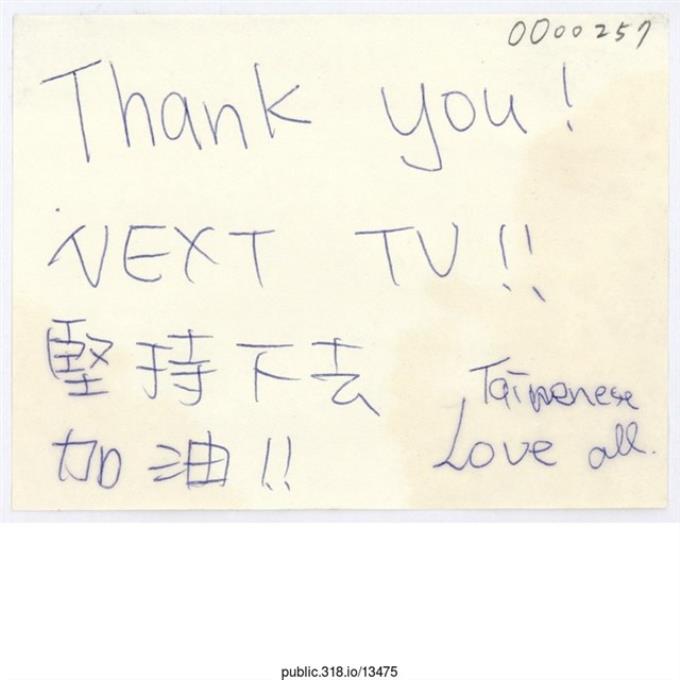 0000257
Thank you!
NEXT TV!!
堅持下去
加油!!
Taiwanese
Love all.
public.318.io/13475